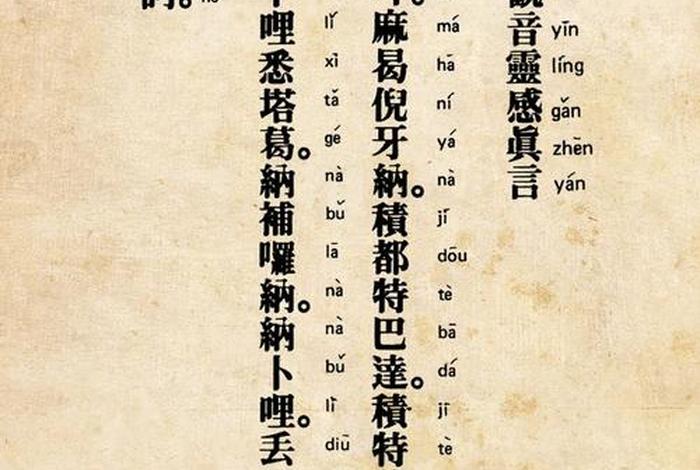 音靈感眞言
yīn líng gǎn zhēn yán
麻曷倪牙納。積都特巴達。積特
má hā ní yá nà jī dōu tè bā dá jī tè
哩悉塔葛。納補囉納。納卜哩。丟
lǐ xì tǎ gé nà bǔ lā nà nà bǔ lì diū